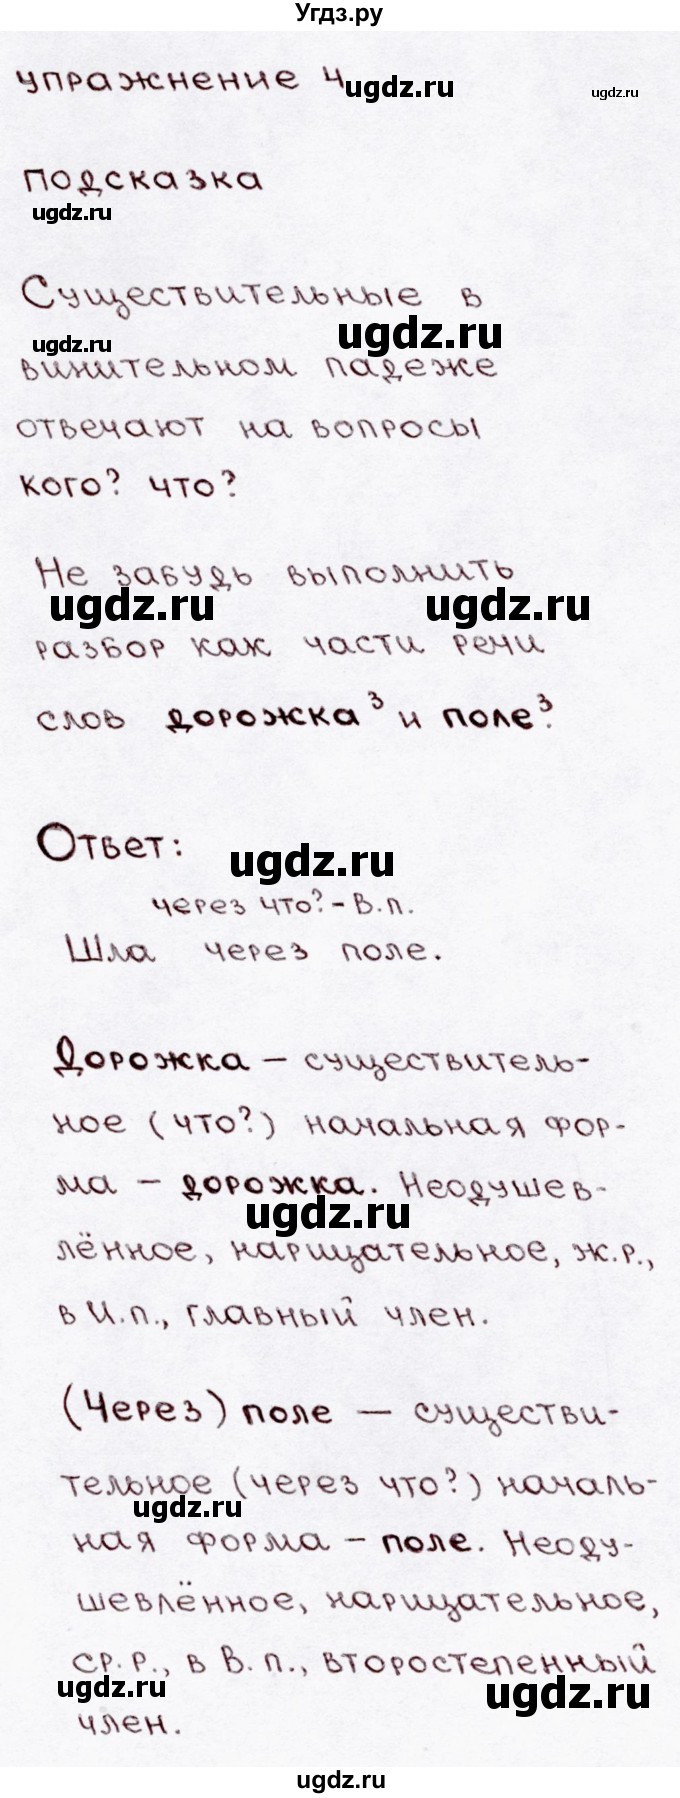 Угдз.ру
упражнение 4
ugdz.ru
ugdz.ru
подсказка
ugdz.ru
Существительные в
ugdz.ru
ugdz.ru
винительном падеже
отвечают на вопросы
кого? что?
Не забудь выполнить
ugdz.ru
ugdz.ru
разбор как части речи
слов дорожка³ и поле³.
Ответ:
ugdz.ru
через что? - В.п.
Шла через поле.
Дорожка – существитель-
ное (что?) начальная фор-
ма – дорожка. Неодушев-
ugdz.ru
лённое, нарицательное, ж.р.,
в И.п., главный член.
(Через) поле – существи-
тельное (через что?) началь-
ugdz.ru
ная форма – поле. Неоду-
шевлённое, нарицательное,
ср.р., в В.п., второстепенный
ugdz.ru
ugdz.ru
член.
ugdz.ru